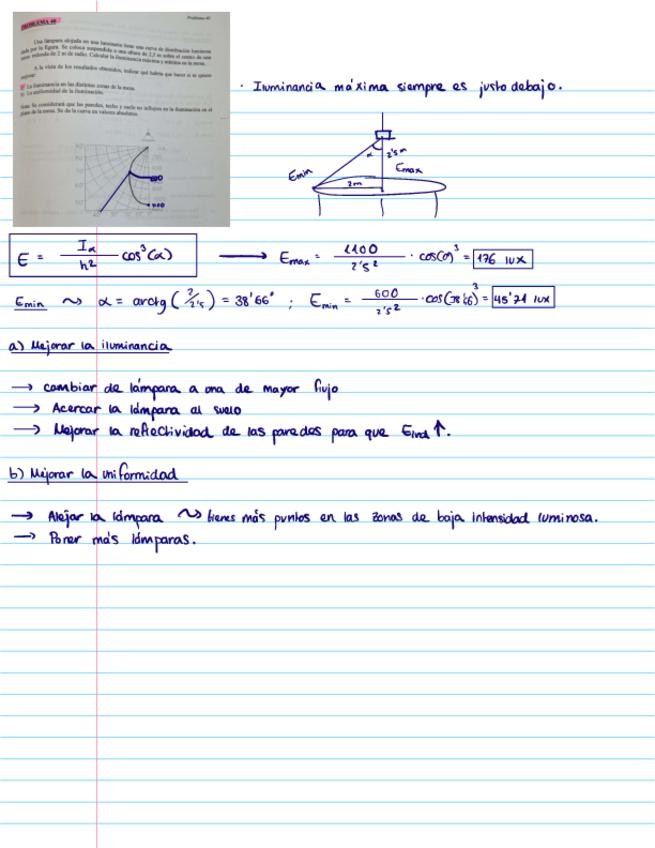 Problema 40
PROBLEMA 40
Una lámpara alojada en una luminaria tiene una curva de distribución luminosa
dada por la figura. Se coloca suspendida a una altura de 2,5 m sobre el centro de una
mesa redonda de 2 m de radio. Calcular la iluminancia máxima y mínima en la mesa.
A la vista de los resultados obtenidos, indicar qué habría que hacer si se quiere
mejorar:
a) La iluminancia en las distintas zonas de la mesa.
b) La uniformidad de la iluminación.
Nota: Se considerará que las paredes, techo y suelo no influyen en la iluminación en el
plano de la mesa. Se da la curva en valores absolutos.
· Iluminancia máxima siempre es justo debajo.
α 2's m
Emin Emax
2m
600
1100
E = Iα / h² cos³(α) → Emax = 1100 / 2's² · cos(0)³ = 176 lux
Emin ~> α = arctg (2/2's) = 38'66° ; Emin = 600 / 2's² · cos(38'66)³ = 45'71 lux
a) Mejorar la iluminancia
→ cambiar de lámpara a una de mayor flujo
→ Acercar la lámpara al suelo
→ Mejorar la reflectividad de las paredes para que Eind ↑.
b) Mejorar la uniformidad
→ Alejar la lámpara ~> tienes más puntos en las zonas de baja intensidad luminosa.
→ Poner más lámparas.